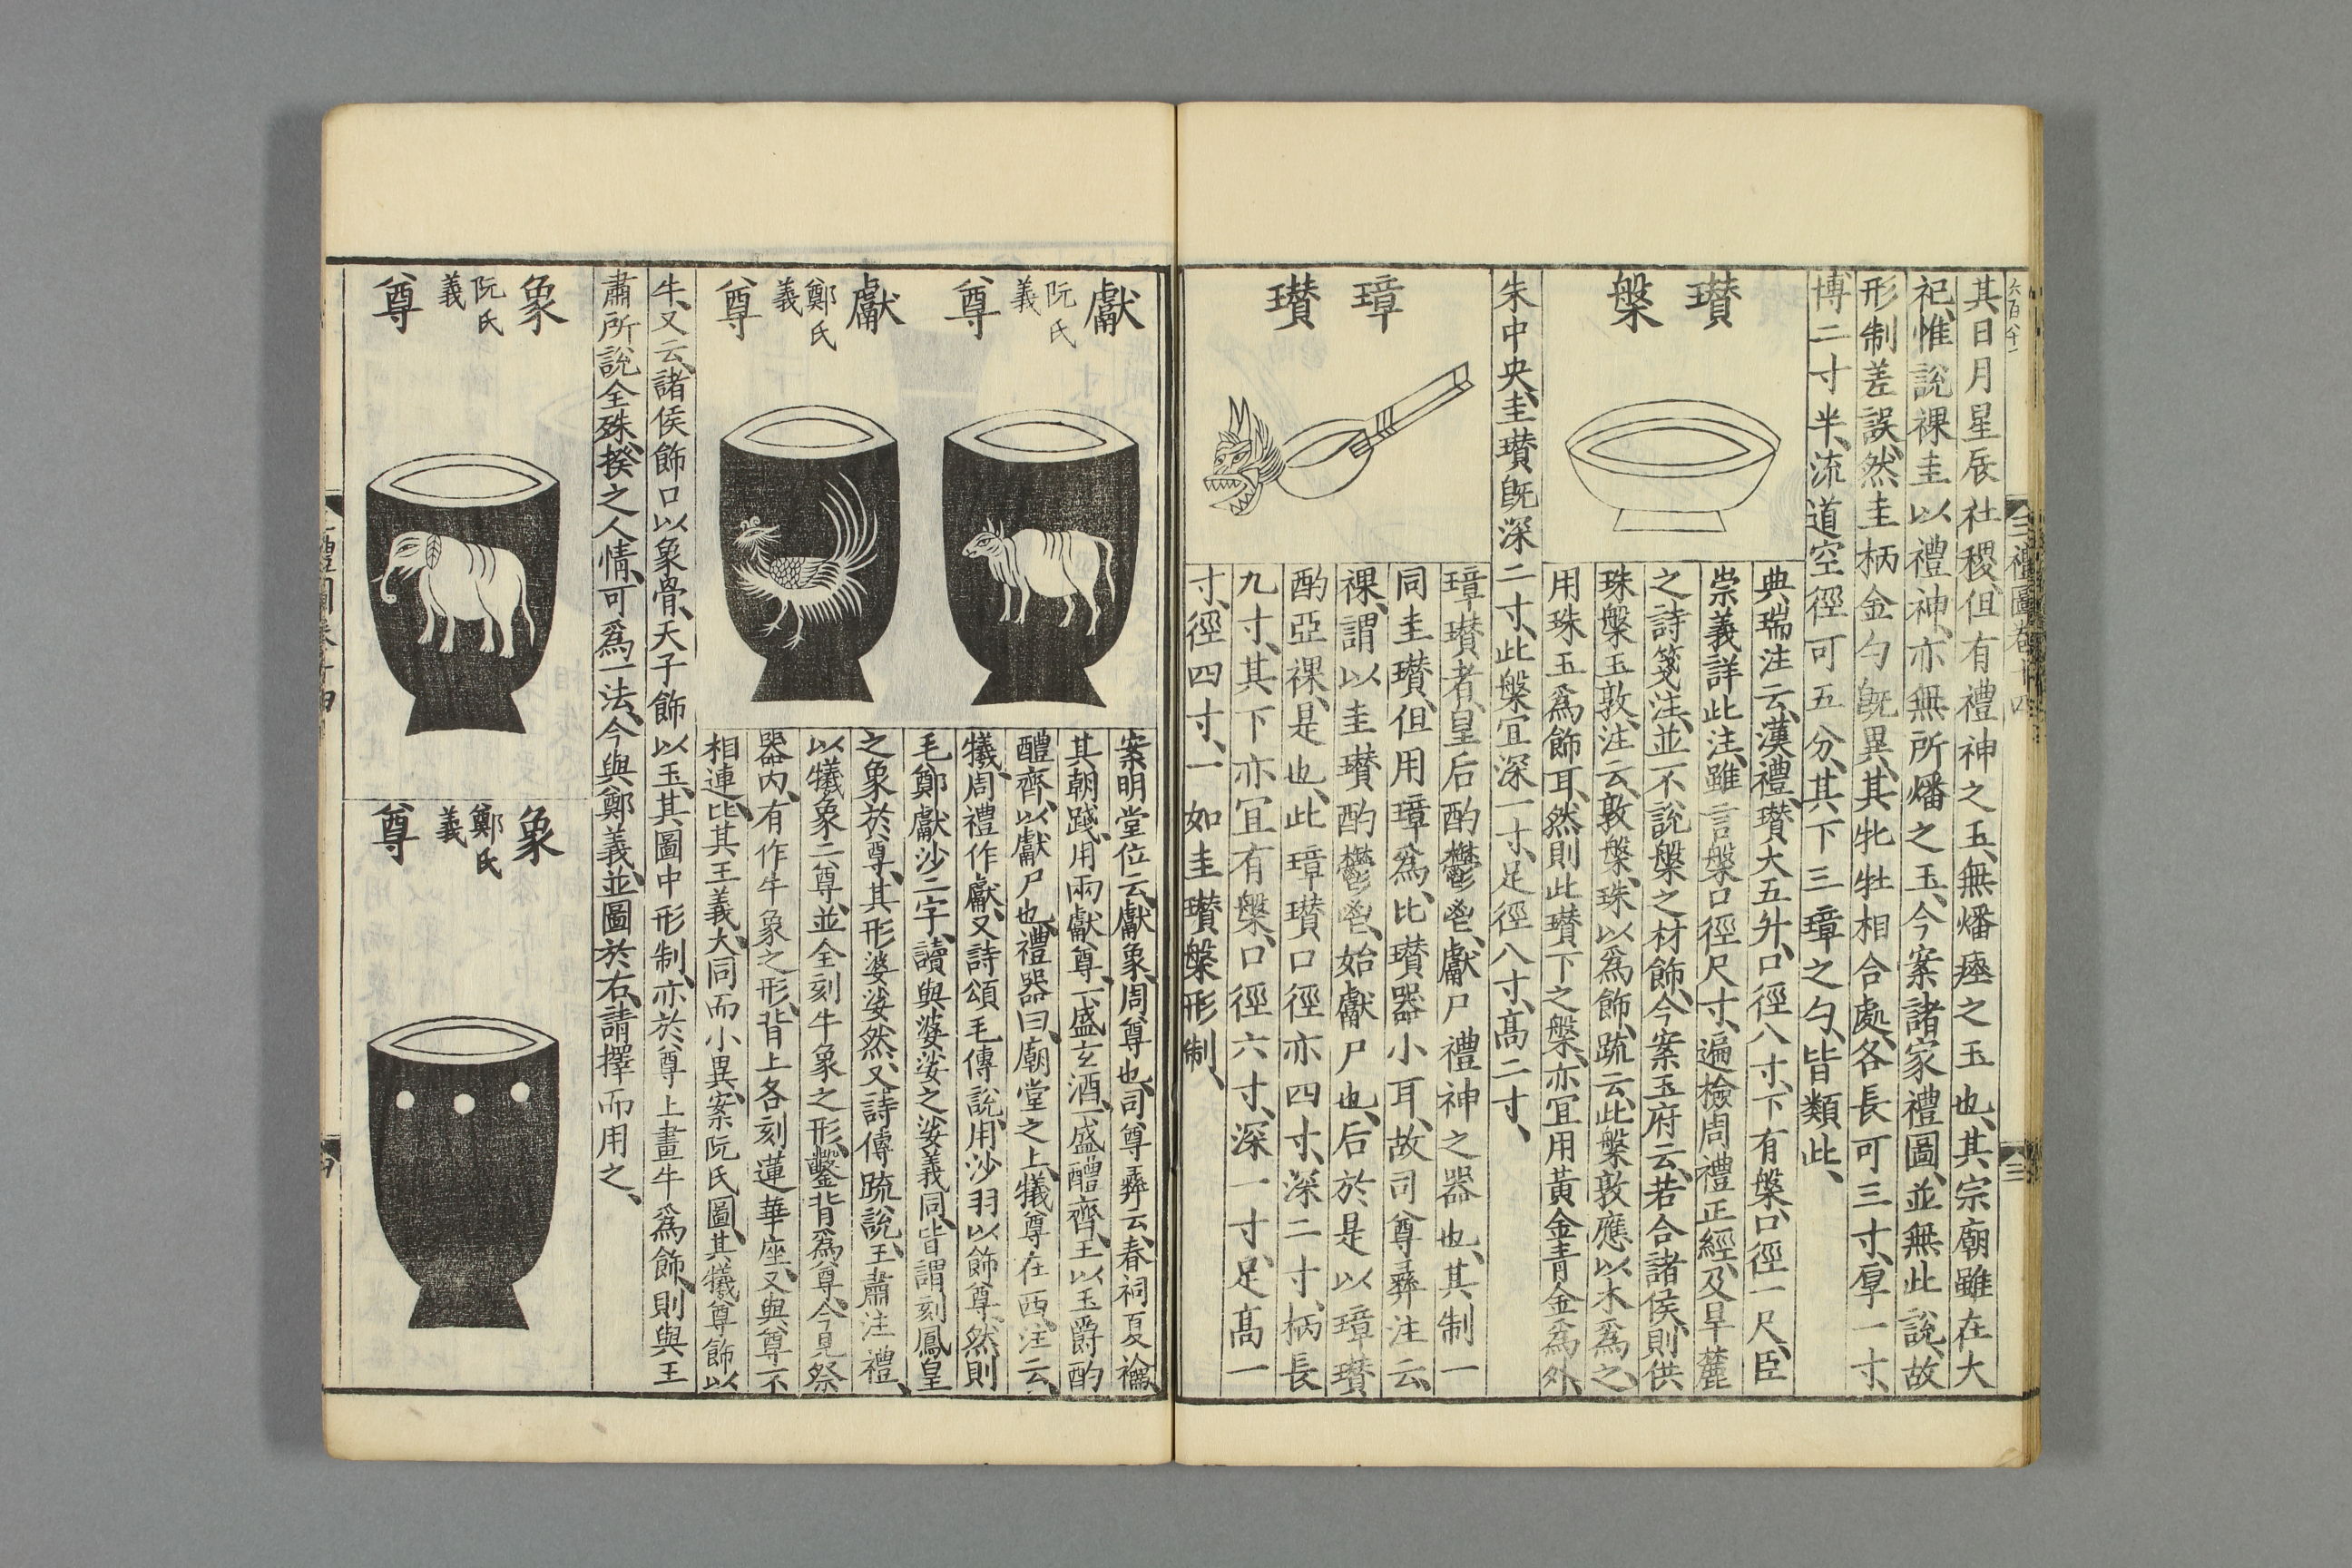 其日月星辰社稷、但有禮神之玉、無燔瘞之玉也、其宗廟雖在大
祀、惟說祼圭以禮神、亦無所燔之玉、今案諸家禮圖、並無此說、故
形制差誤、然圭柄金勺旣異、其牝牡相合處、各長可三寸、厚一寸、
博二寸半、流道空徑可五分、其下三璋之勺、皆類此、
瓚槃
典瑞注云、漢禮、瓚大五升、口徑八寸、下有槃、口徑一尺、臣
崇義詳此注、雖言槃口徑尺寸、遍檢周禮正經、及旱麓
之詩箋注、並不說槃之材飾、今案玉府云、若合諸侯、則供
珠槃玉敦、注云、敦槃、珠以爲飾、疏云、此槃敦應以木爲之、
用珠玉爲飾耳、然則此瓚下之槃、亦宜用黃金青金爲外、
朱中央、圭瓚旣深二寸、此槃宜深一寸、足徑八寸、高二寸、
璋瓚
璋瓚者、皇后酌鬱鬯、獻尸禮神之器也、其制一
同圭瓚、但用璋爲、比瓚器小耳、故司尊彝注云、
祼、謂以圭瓚酌鬱鬯、始獻尸也、后於是以璋瓚
酌亞祼、是也、此璋瓚口徑亦四寸、深二寸、柄長
九寸、其下亦宜有槃、口徑六寸、深一寸、足高一
寸、徑四寸、一如圭瓚槃形制、
三禮圖卷十四
三
獻尊 阮氏義
獻尊 鄭氏義
案明堂位云、獻象、周尊也、司尊彝云、春祠夏禴
其朝踐、用兩獻尊、一盛玄酒、一盛醴齊、王以玉爵酌
醴齊、以獻尸也、禮器曰、廟堂之上、犧尊在西、注云、
犧、周禮作獻、又詩頌毛傳說、用沙羽以飾尊、然則
毛鄭獻沙二字、讀與婆娑之娑義同、皆謂刻鳳皇
之象於尊、其形婆娑然、又詩傳疏說、王肅注禮、
以犧象二尊、並全刻牛象之形、鑿背爲尊、今見祭
器內、有作牛象之形、背上各刻蓮華座、又與尊不
相連比、其王義大同而小異、案阮氏圖、其犧尊飾以
牛、又云、諸侯飾口以象骨、天子飾以玉、其圖中形制、亦於尊上畫牛爲飾、則與王
肅所說全殊、揆之人情、可爲一法、今與鄭義、並圖於右、請擇而用之、
象尊 阮氏義
象尊 鄭氏義